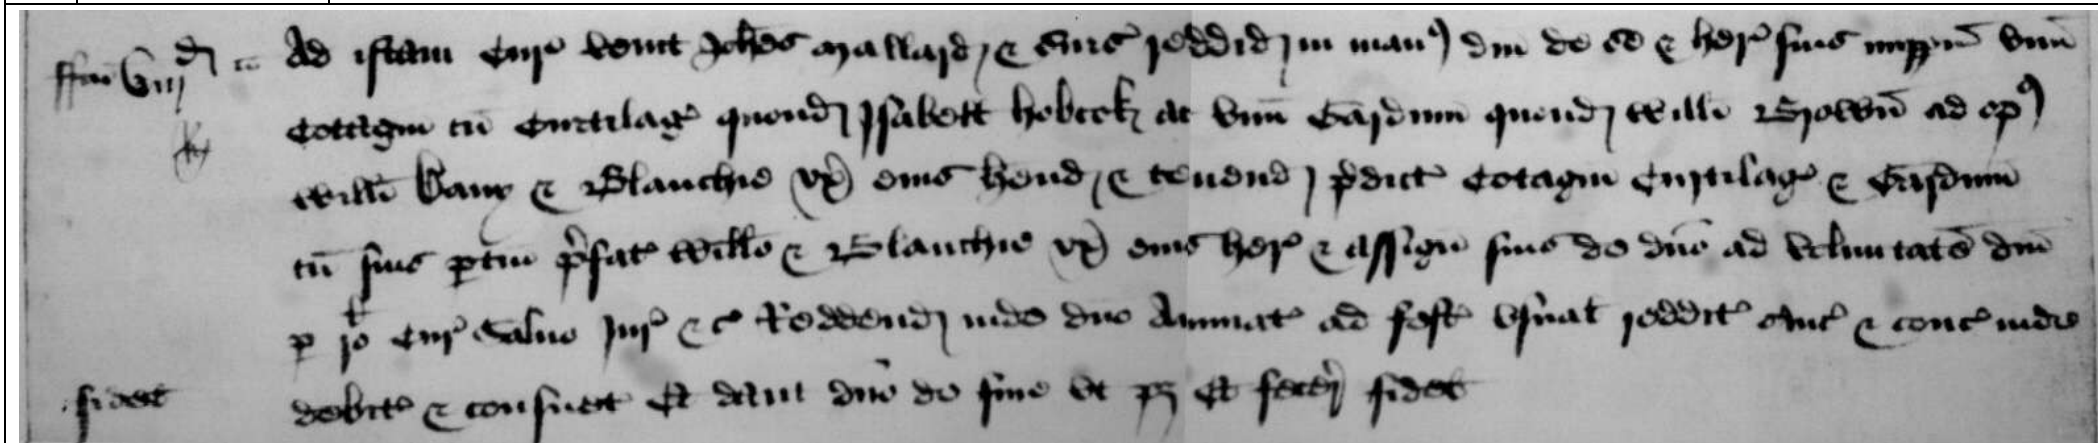 ffin viijd Ad istam Cur venit Johes Mallard & surs redd in man dni de se & her suis imppm unu
Cotagm cu Curtilag quond Isabell hobcok ac unu Gardinum quond Willi Brown ad op
Willi & Blanchie ux eius hend & tenend pdict Cotagm Curtilag & Gardinum
cu suis ptin pfat Willo & Blanchie ux eius her & assign suis de dno ad voluntate dni
p ro Cur Salvo Jur & c Reddend inde dno Annuat ad fest usual reddit & inde
fidelt debit & consuet Et dant dno de fine ut p Et fecer fidel